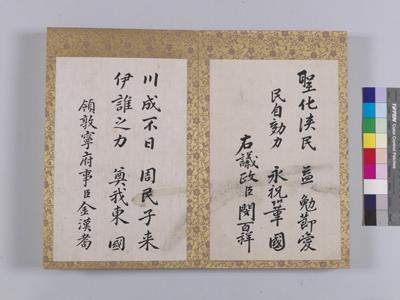 聖化浹民 益勉節愛
民自効力 永祝鞏國
右議政臣閔百祥
川成不日 周民子来
伊誰之力 奠我東國
領敦寧府事臣金漢耉